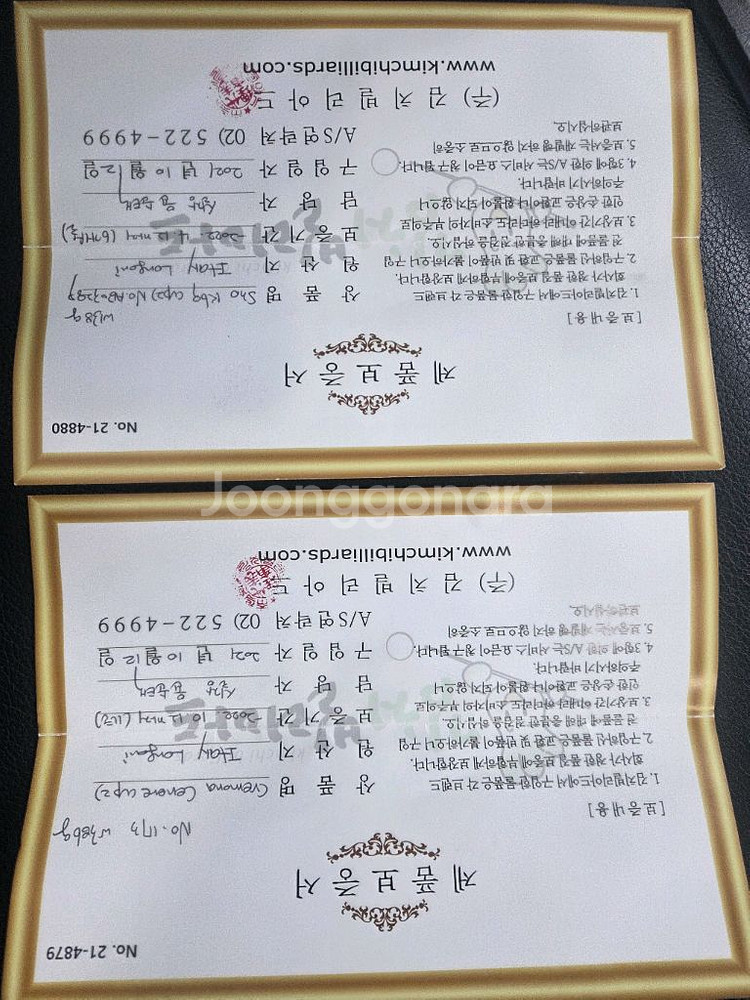 No. 21-4880
제 품 보 증 서
[ 보 증 내 용 ]
1. 김치빌리아드에서 구입한 물품은 각 브랜드
회사가 정한 품질 보증에 부합하게 보상합니다.
2. 구입하신 물품은 교환 및 반품이 불가하오니 구입
전 물품에 대해 충분한 점검을 하십시오.
3. 보상기간 이내라 하더라도 소비자의 부주의로
인한 손상은 교환이나 환불이 되지 않으니
주의하시기 바랍니다.
4. 3항에 의한 A/S는 서비스 요금이 청구됩니다.
5. 보증서는 재발행 하지 않으므로 소중히
보관하십시오.
w138g
상 품 명 Sho K69 No.
원 산 지 Italy Longoni
보 증 기 간 2022. 4. 12 까지 (6개월)
담 당 자
구 입 일 자 2021 년 10 월 12 일
A/S연락처 02) 522-4999
(주) 김 치 빌 리 아 드
www.kimchibilliards.com
Joonggonara
No. 21-4879
제 품 보 증 서
[ 보 증 내 용 ]
1. 김치빌리아드에서 구입한 물품은 각 브랜드
회사가 정한 품질 보증에 부합하게 보상합니다.
2. 구입하신 물품은 교환 및 반품이 불가하오니 구입
전 물품에 대해 충분한 점검을 하십시오.
3. 보상기간 이내라 하더라도 소비자의 부주의로
인한 손상은 교환이나 환불이 되지 않으니
주의하시기 바랍니다.
4. 3항에 의한 A/S는 서비스 요금이 청구됩니다.
5. 보증서는 재발행 하지 않으므로 소중히
보관하십시오.
No. 1173 w386g
상 품 명 Cremona
원 산 지 Italy Longoni
보 증 기 간 2022. 10. 12 까지 (1년)
담 당 자
구 입 일 자 2021 년 10 월 12 일
A/S연락처 02) 522-4999
(주) 김 치 빌 리 아 드
www.kimchibilliards.com